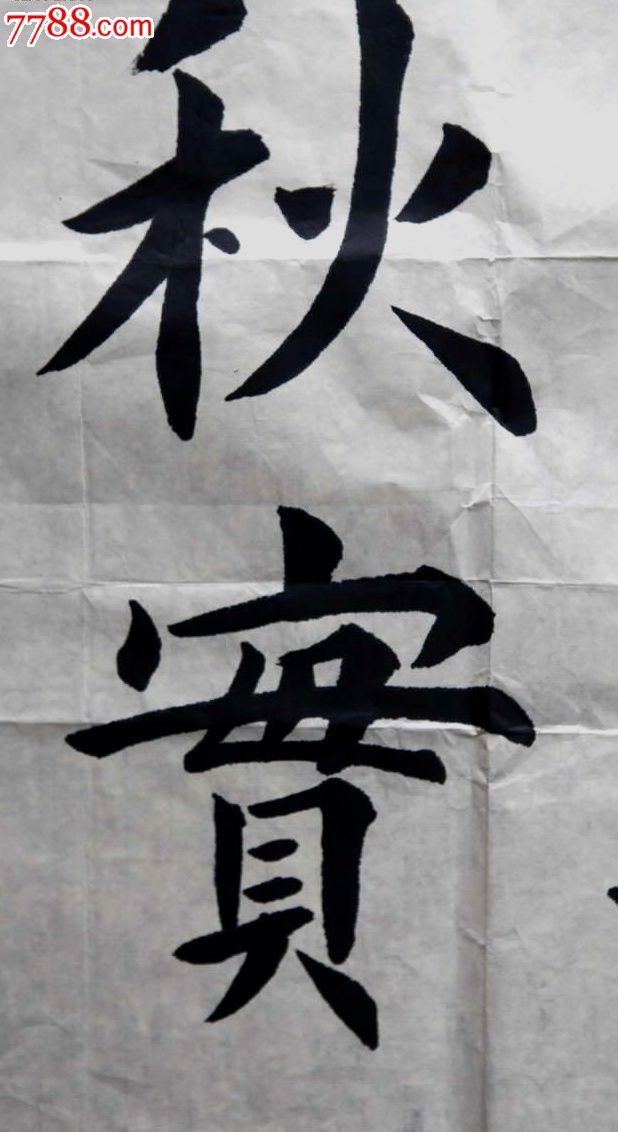 7788.com
秋
實